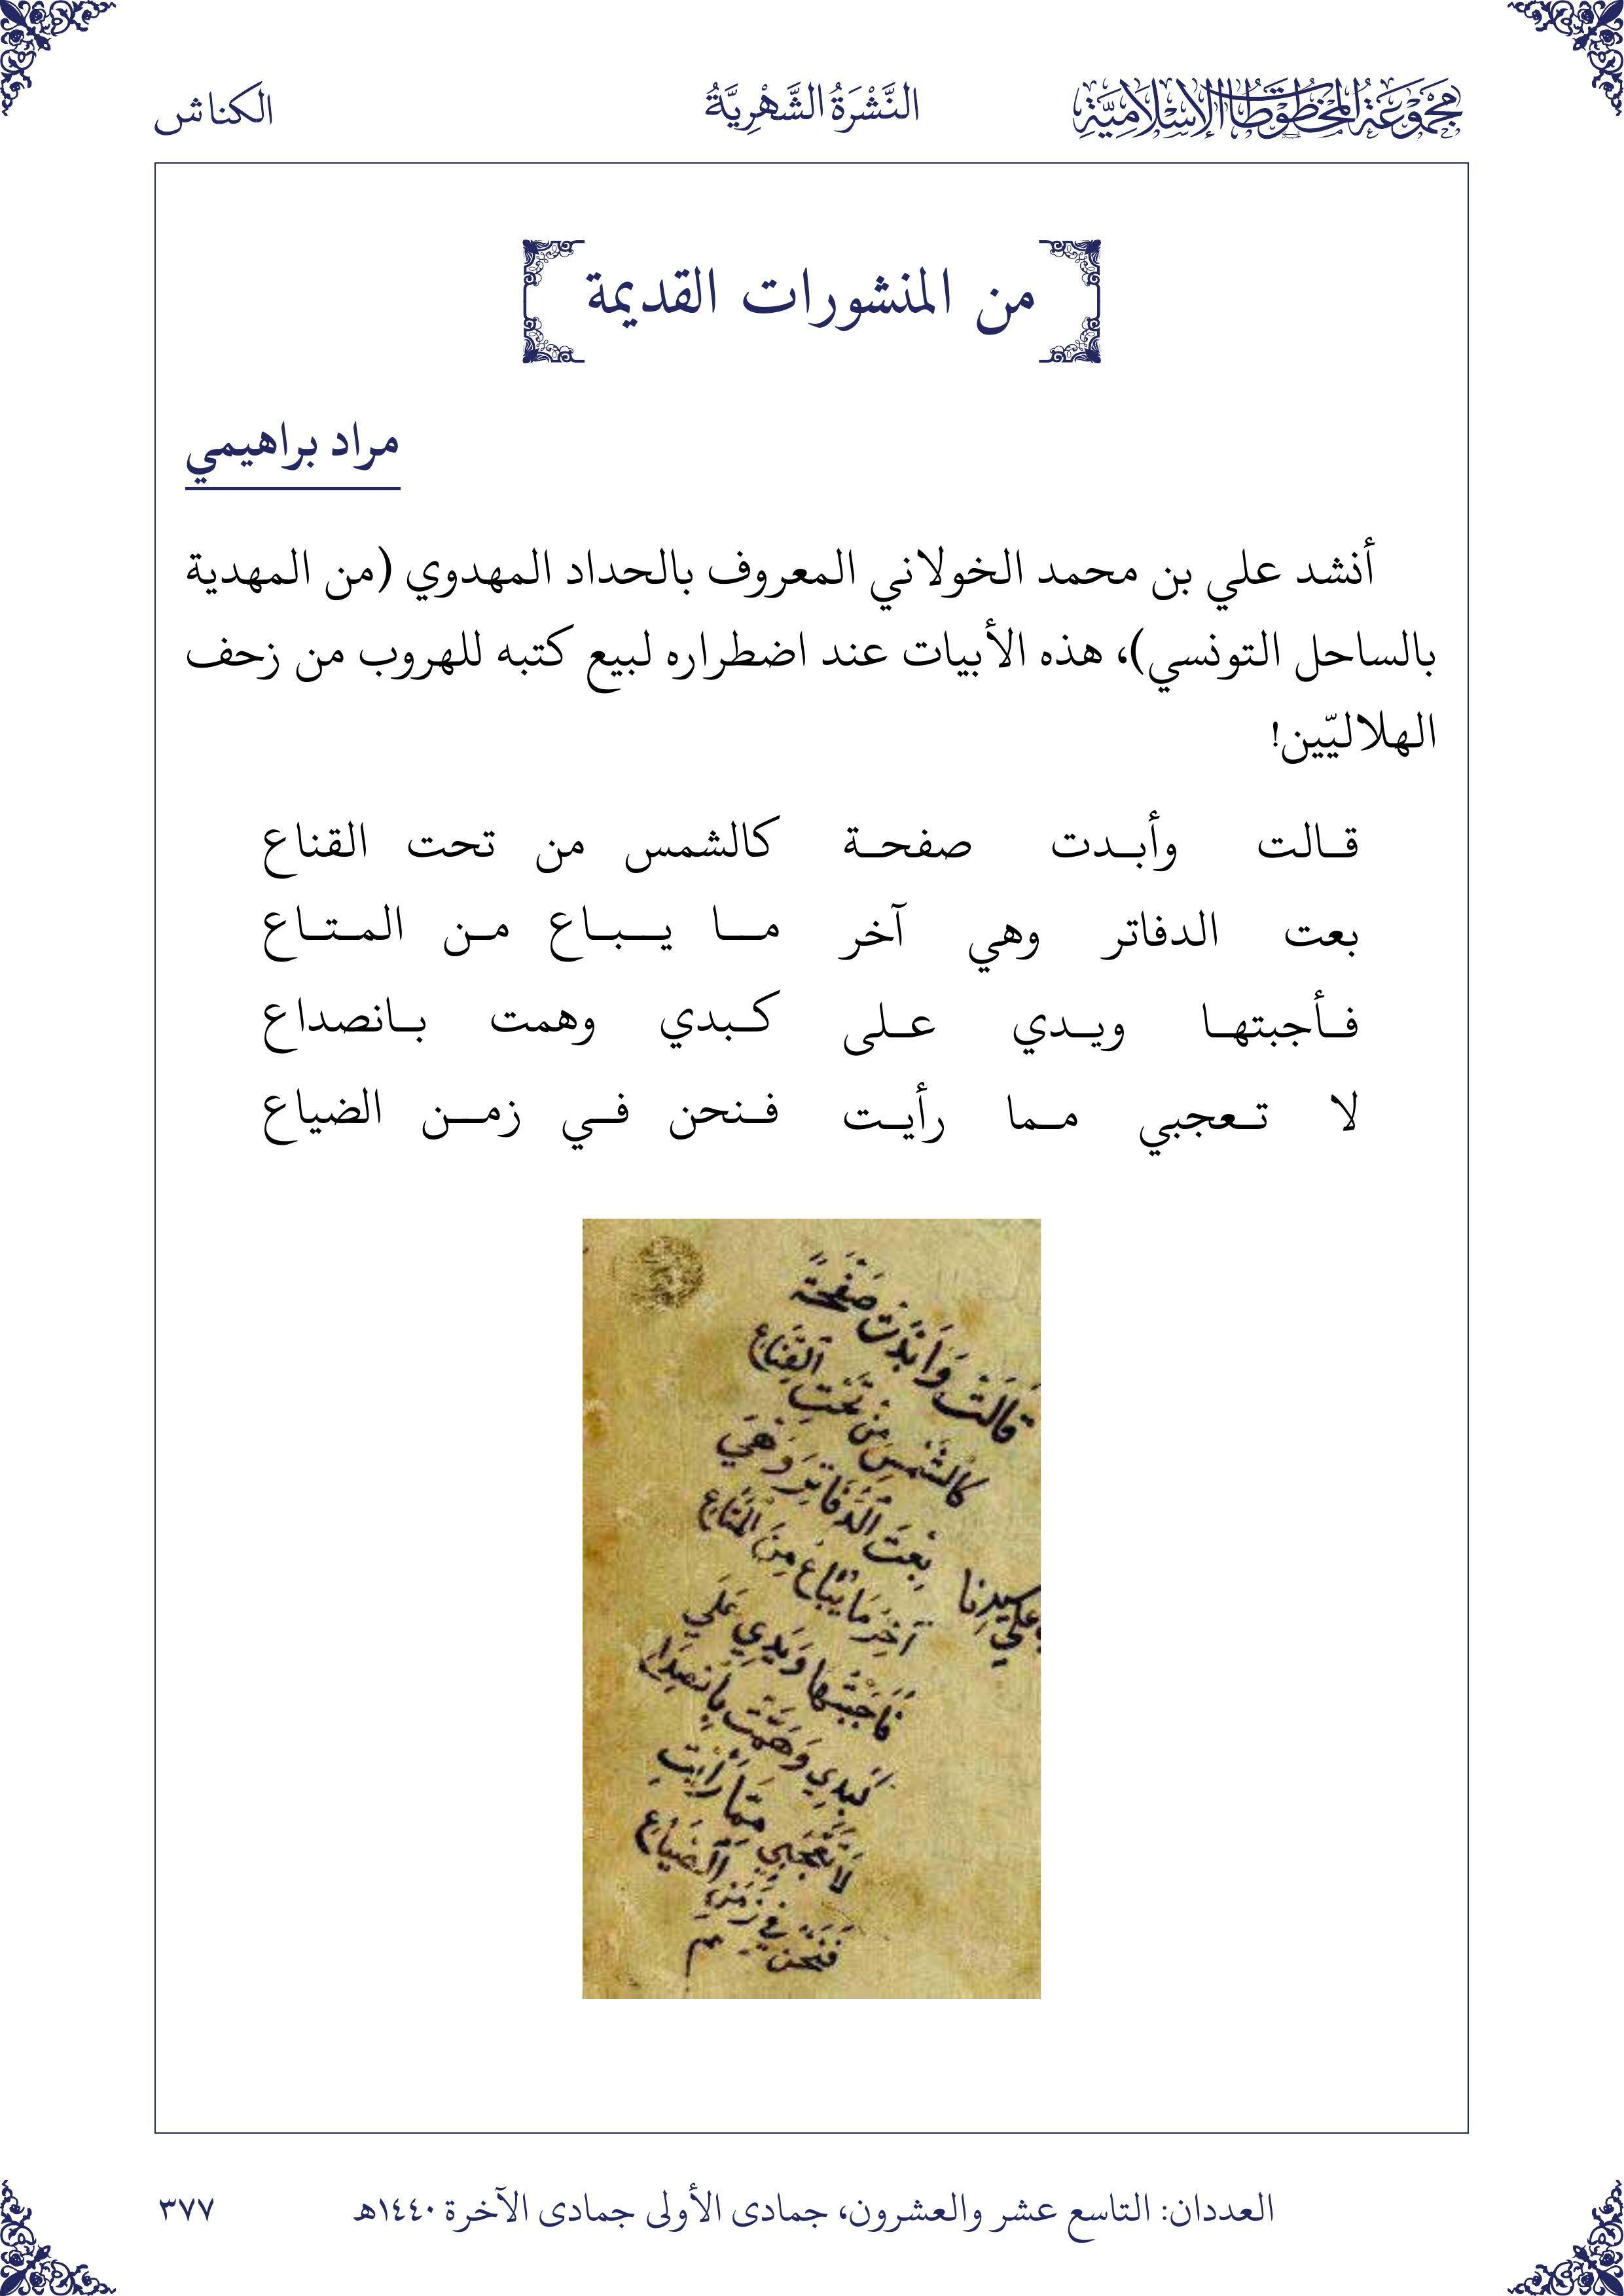 مَجْمُوعَةُ المَخْطُوطَاتِ الإِسْلَامِيَّةِ
النَّشْرَةُ الشَّهْرِيَّةُ
الكناش
من المنشورات القديمة
مراد براهيمي
أنشد علي بن محمد الخولاني المعروف بالحداد المهدوي (من المهدية
بالساحل التونسي)، هذه الأبيات عند اضطراره لبيع كتبه للهروب من زحف
الهلاليّين!
قالت وأبدت صفحة كالشمس من تحت القناع
بعت الدفاتر وهي آخر ما يباع من المتاع
فأجبتها ويدي على كبدي وهمت بانصداع
لا تعجبي مما رأيت فنحن في زمن الضياع
قَالَتْ وَابْدَتْ صَفْحَةً
كَالشَّمْسِ مِنْ تَحْتِ الْقِنَاعِ
بِعْتَ الدَّفَاتِرَ وَهْيَ
آخِرُ مَا يُبَاعُ مِنَ الْمَتَاعِ
فَاَجَبْتُهَا وَيَدِي عَلَي
كَبِدِي وَهَمَّتْ بِانْصِدَاعِ
لَا تَعْجَبِي مِمَّا رَاَيْتِ
فَنَحْنُ فِي زَمَنِ الضَّيَاعِ
العددان: التاسع عشر والعشرون، جمادى الأولى جمادى الآخرة ١٤٤٠هـ
٣٧٧